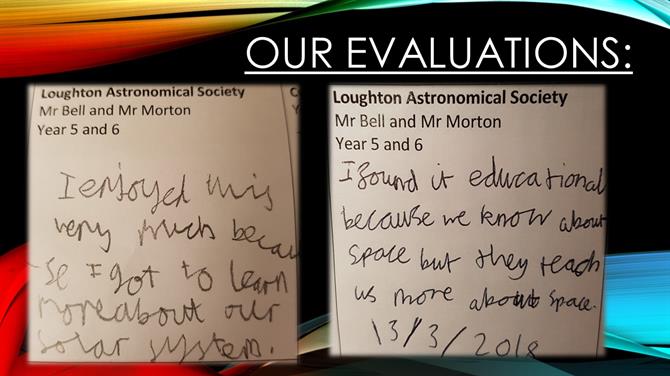 OUR EVALUATIONS:
Loughton Astronomical Society
Mr Bell and Mr Morton
Year 5 and 6
I enjoyed this
very much becau
-se I got to learn
more about our
solar system.
Loughton Astronomical Society
Mr Bell and Mr Morton
Year 5 and 6
I found it educational
because we know about
space but they teach
us more about space.
13/3/2018